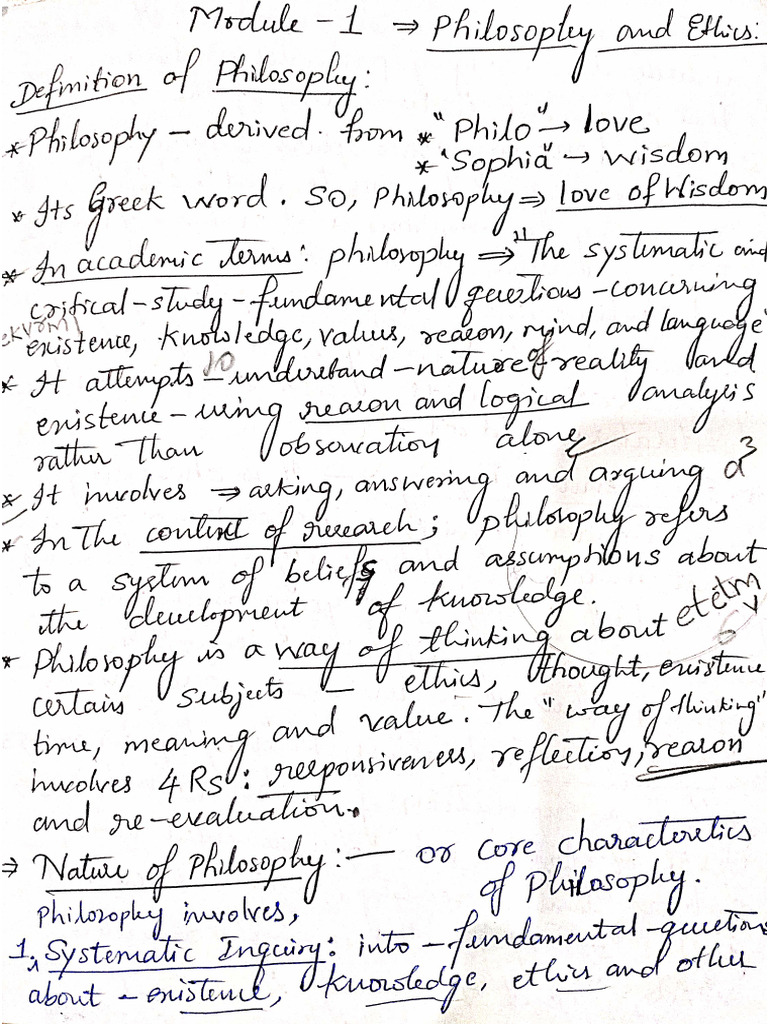 Module - 1 ⇒ Philosophy and Ethics:
Definition of Philosophy:
* Philosophy - derived from * "Philo" → love
* "Sophia" → wisdom
* Its Greek word. So, Philosophy ⇒ love of Wisdom
* In academic terms: philosophy ⇒ "The systematic and
critical - study - fundamental questions - concerning
existence, knowledge, values, reason, mind, and language"
* It attempts - to understand - nature of reality and
existence - using reason and logical analysis
rather than observation alone
* It involves ⇒ asking, answering and arguing a³
* In the context of research; philosophy refers
to a system of beliefs and assumptions about
the development of knowledge.
* Philosophy is a way of thinking about etetm
certain subjects - ethics, thought, existence
time, meaning and value. The "way of thinking"
involves 4 Rs: responsiveness, reflection, reason
and re-evaluation.
⇒ Nature of Philosophy: - or core characteristics
of Philosophy.
Philosophy involves,
1. Systematic Inquiry: into - fundamental - questions
about - existence, knowledge, ethics and other